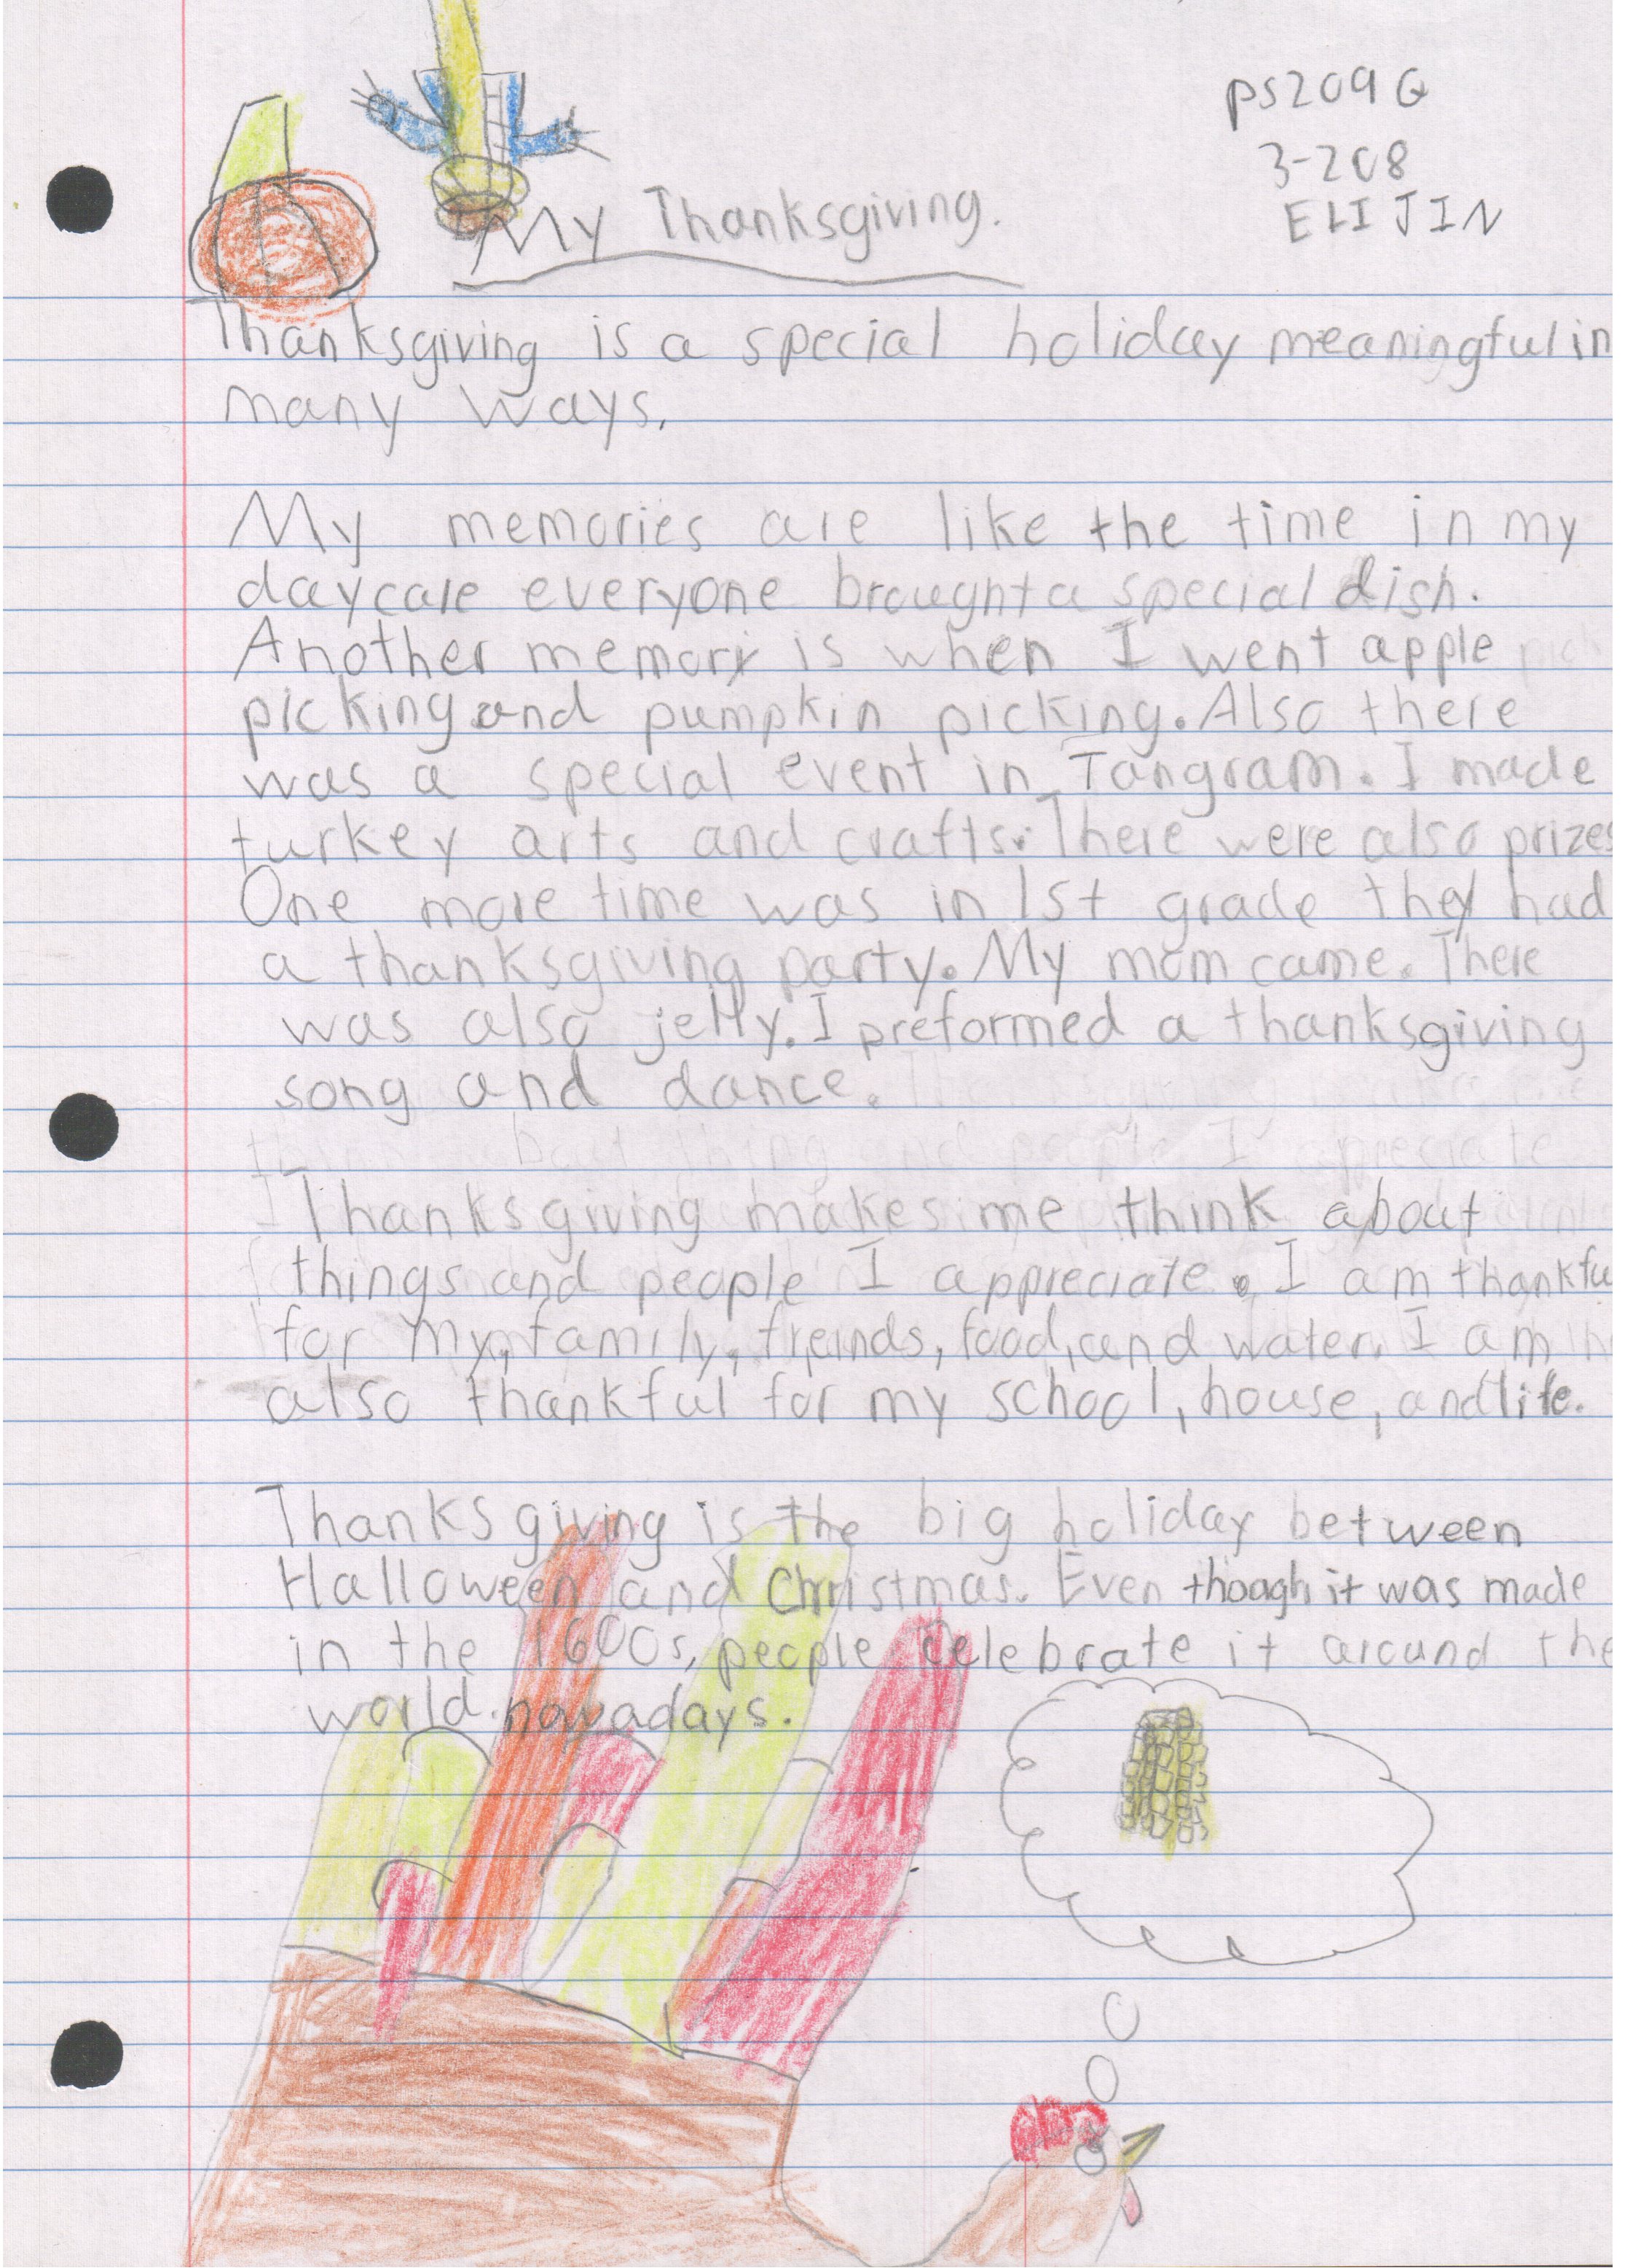 PS209Q
3-208
ELI JIN
My Thanksgiving.
Thanksgiving is a special holiday meaningful in
many ways.
My memories are like the time in my
daycare everyone brought a special dish.
Another memory is when I went apple
picking and pumpkin picking. Also there
was a special event in Tangram. I made
turkey arts and crafts. There were also prizes
One more time was in 1st grade they had
a thanksgiving party. My mom came. There
was also jelly. I preformed a thanksgiving
song and dance.
Thanksgiving makes me think about
things and people I appreciate. I am thankfu
for my, family, freinds, food, and water. I am
also thankful for my school, house, and life.
Thanksgiving is the big holiday between
Halloween and Christmas. Even though it was made
in the 1600s, people celebrate it around the
world. nowadays.